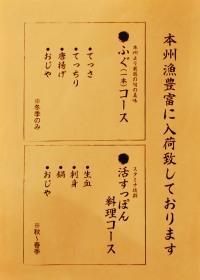 本州漁豊富に入荷致しております
本州より直送の旬の美味
●ふぐ(一本)コース
●てっさ
●てっちり
●唐揚げ
●おじや
※冬季のみ
スタミナ抜群
●活すっぽん
料理コース
●生血
●刺身
●鍋
●おじや
※秋〜春季